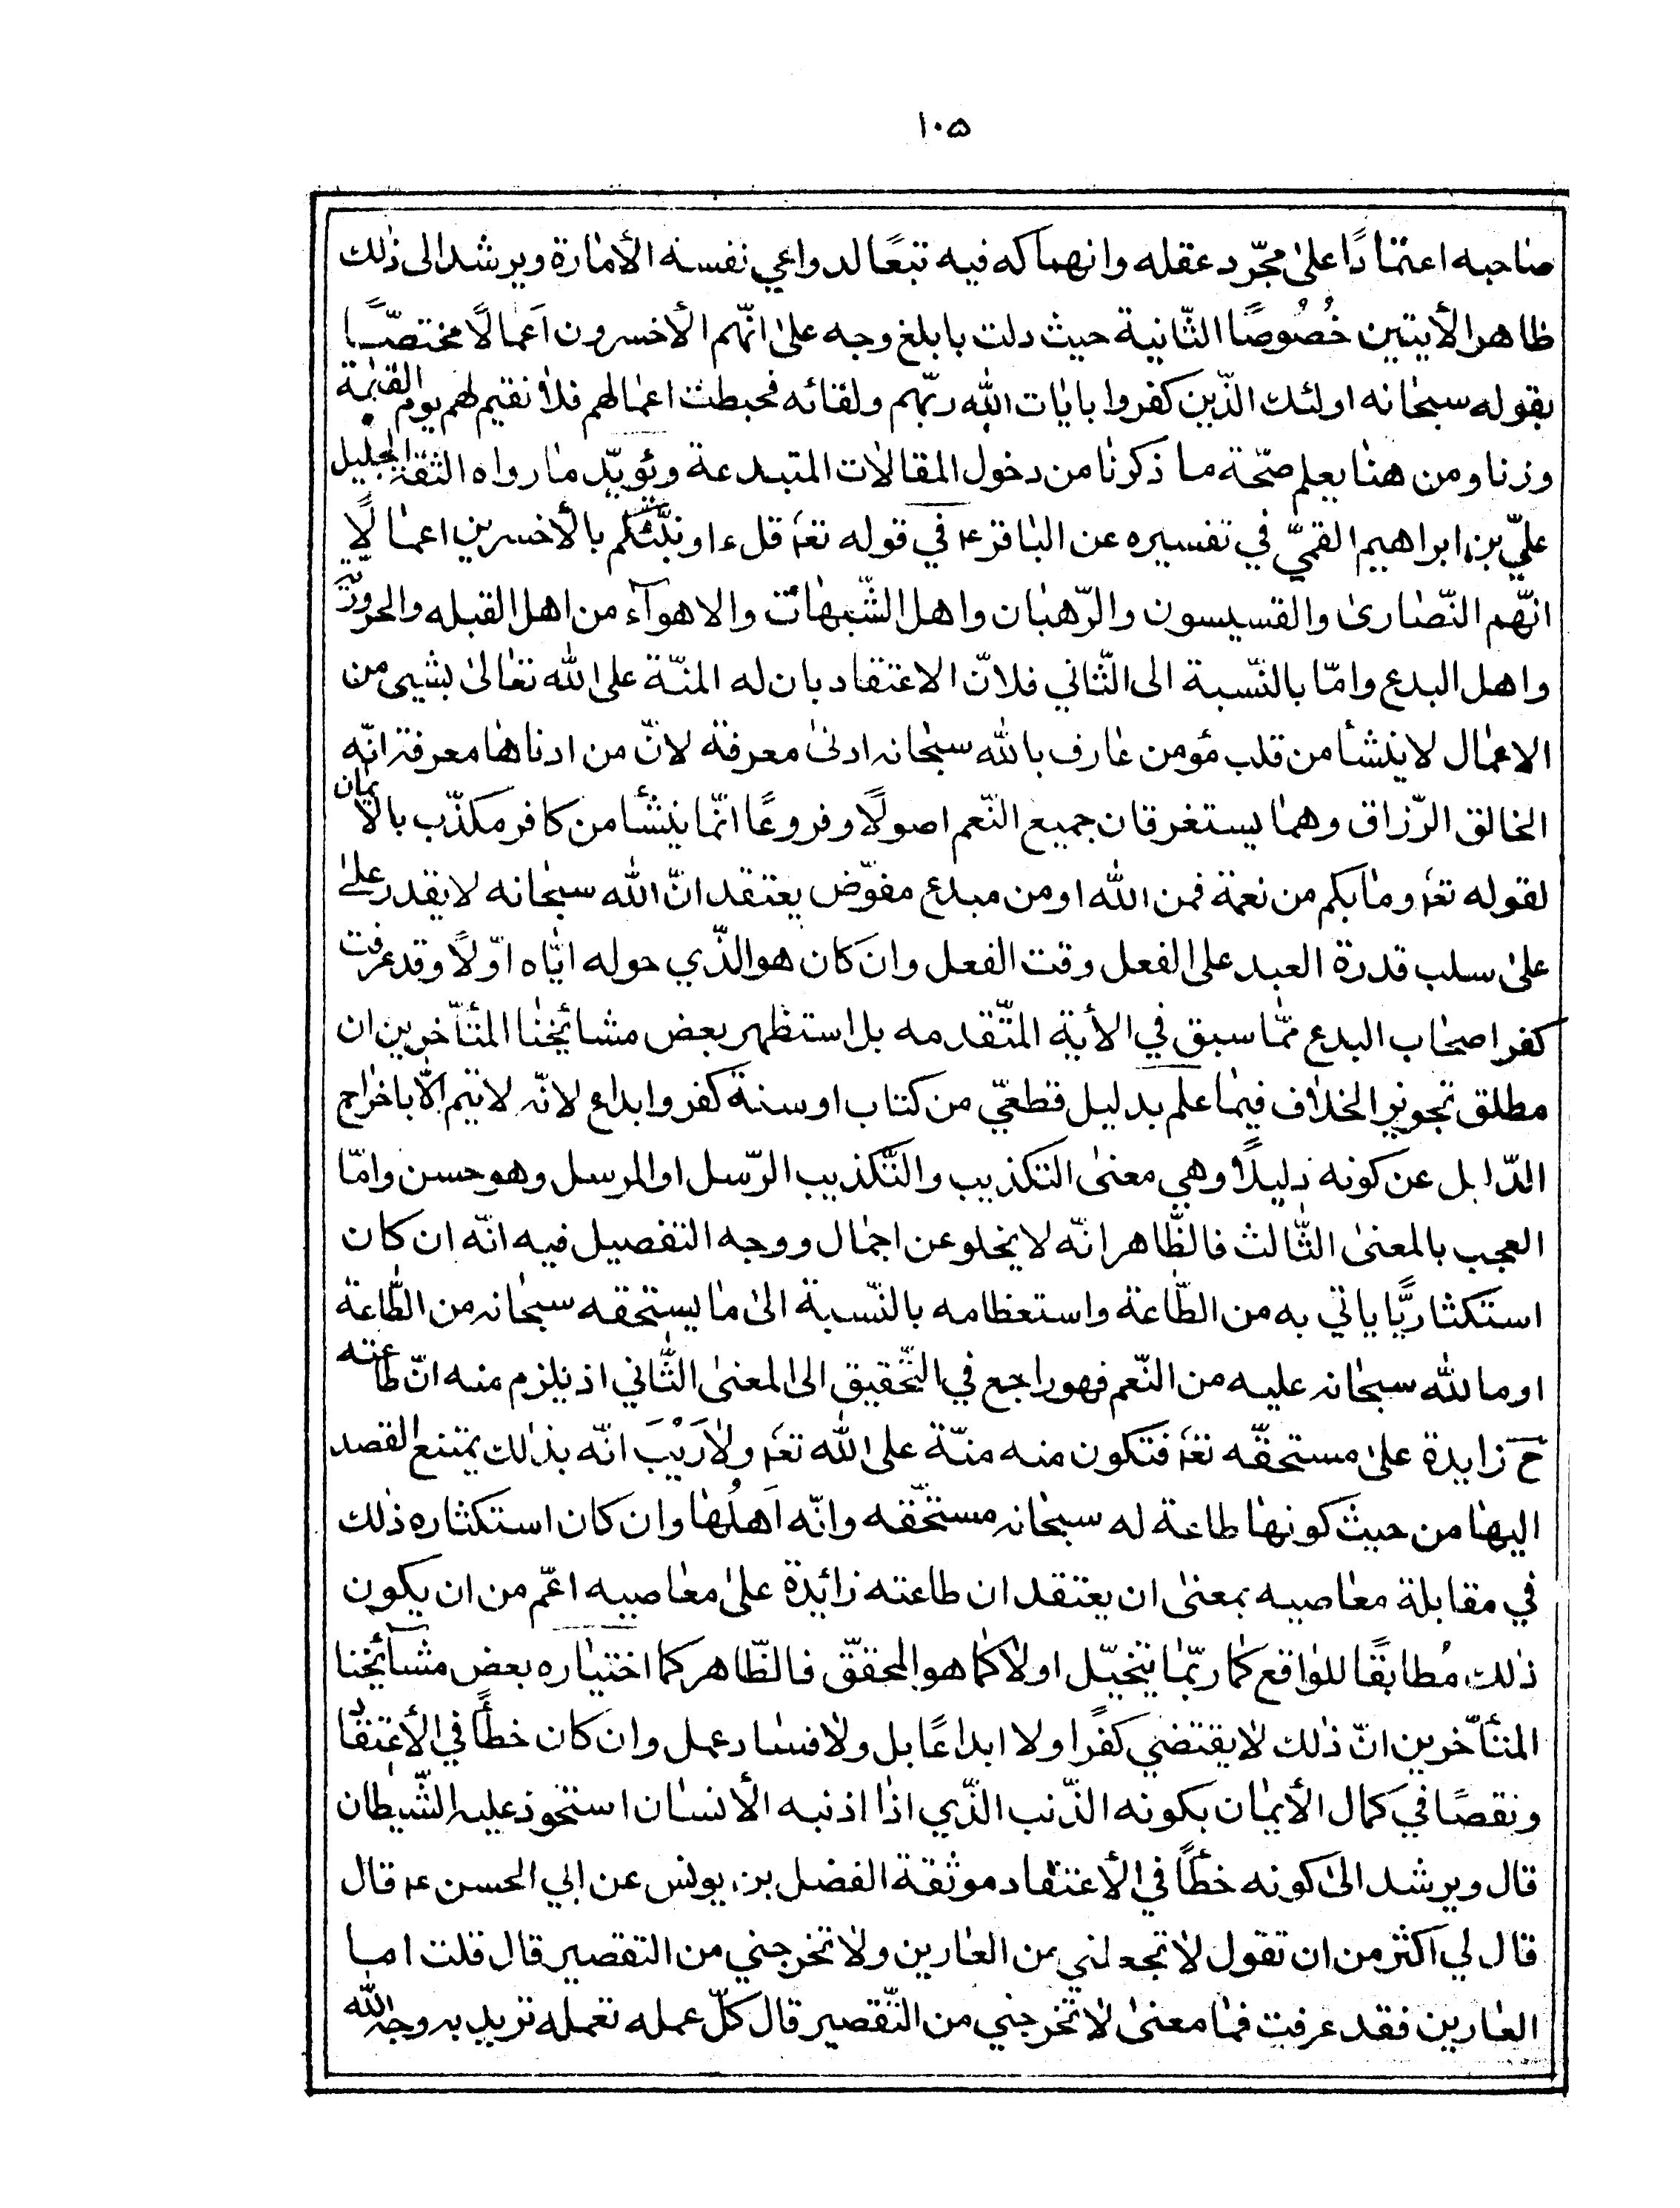 ١٠٥
صاحبه اعتمادًا علىٰ مجّرد عقله وانهماكه فيه تبعًا لدواعي نفسه الأمارة ويرشد الى ذٰلك
ظاهر الأيتين خُصُوصًا الثّانية حيث دلت بابلغ وجه علىٰ انّهم الأخسرون اَعمالًا مختصّــًا
بقوله سبحٰانه اولئك الذّين كفروا باٰيٰات اللّٰه ربّهم ولقائه فحبطت اعمٰالهم فلاٰ نقيم لهم يوم القيٰمة
وزنا ومن هنٰا يعلم صحّة مـا ذكرنٰا من دخول المقالات المتبـدعة ويؤيّد مٰا رواه الثقة الجليل
عليّ بن ابراهيم القميّ في تفسيره عن البٰاقر ع في قوله تعٰ قل ءاونبّئكم بالأخسرين اعمـٰا لًا
انّهم النّصٰارىٰ والقسيسون والرّهبٰان واهل الشّبهٰات والاهوآء من اهل القبله والحروريّة
واهل البدع وامّا بالنّسبة الى الثّاني فلانّ الاعتقاد بان له المنّة على اللّٰه تعٰالىٰ بشيىء من
الاعمٰال لا ينشأ من قلب مؤمن عٰارف باللّٰه سبحٰانه ادنىٰ معرفة لانّ من ادناهٰا معرفة انّه
الخالق الرّزاق وهمٰا يستغرقان جميع النّعم اصولًا وفروعًا انّمٰا ينشٔا من كافر مكذّب بالأيمٰان
لقوله تعٰ ومٰا بكم من نعمة فمن اللّٰه او من مبدع مفوّض يعتقد انّ اللّٰه سبحٰانه لا يقدر علىٰ
علىٰ سلب قدرة العبد على الفعل وقت الفعل وان كان هو الذّي حوله ايّاه اوّلًا وقد عرفت
كفر اصحٰاب البدع ممّٰا سبق في الأية المتّقدمه بل استظهر بعض مشائخنٰا المتأخرين ان
مطلق تجويز الخلاٰف فيمٰا علم بدليل قطعيّ من كتاب او سنة كفر وابداع لانّه لا يتم الّا باخرٰاج
الدّابل عن كونه دليلًا وهي معنىٰ التكذيب والتّكذيب الرّسل او المرسل وهو حسن وامّا
العجب بالمعنىٰ الثّالث فالظّاهر انّه لا يخلو عن اجمٰال ووجه التفصيل فيه انّه ان كان
استكثاريًّا ياتي به من الطّاعة واستعظامه بالنّسبة الىٰ مٰا يستحقه سبحٰانه من الطّاعة
او مـا للّٰه سبحٰانه عليـه من النّعم فهو راجع في التّحقيق الى المعنىٰ الثّاني اذ يلزم منه انّ طاعته
ح زايدة علىٰ مستحقّه تعٰ فتكون منه منّة على اللّٰه تعٰ ولاٰ رَيْبَ انّه بذٰلك يمتنع القصد
اليهٰا من حيث كونهٰا طاعة له سبحٰانه مستحّقه وانّه اَهلُهٰا وان كان استكثاره ذٰلك
في مقابلة معٰاصيـه بمعنىٰ ان يعتقد ان طاعته زائدة علىٰ معٰاصيه اعّم من ان يكون
ذٰلك مُطابقًا للوٰاقع كمٰا ربّمٰا يتخيّل اولاٰ كمٰا هو المحققّ فالظّاهر كما اختيٰاره بعض مشـآئخنا
المتأخّرين انّ ذٰلك لاٰ يقتضي كفرًا ولا ابداعًا بل ولاٰ فسٰاد عمل وان كان خطأً في الأعتقٰاد
ونقصًا في كمال الأيمٰان بكونه الذّنب الذّي اذٰا اذنبه الأنسٰان استحوذ عليه الشّيطان
قال ويرشد الىٰ كونه خطأً في الأعتقاد موثقة الفضل بن يونس عن ابي الحسن ع قال
قال لي اكثر من ان تقول لاٰ تجعلني من العٰارين ولاٰ تخرجني من التقصير قال قلت امـا
العٰارين فقد عرفت فمٰا معنىٰ لاٰ تخرجني من التّقصير قال كلّ عمله تعمله تريد به وجه اللّٰه